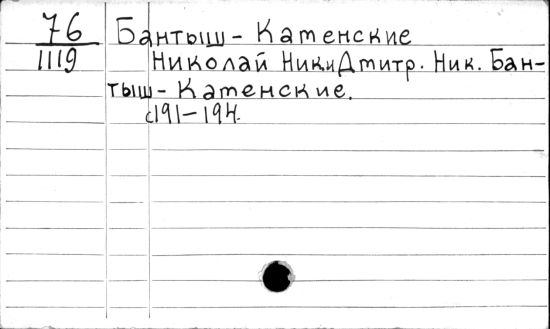 76 Бантыш - Каменские
1119 Николай Ник. и Дмитр. Ник. Бан-
тыш - Каменские.
с191-194.